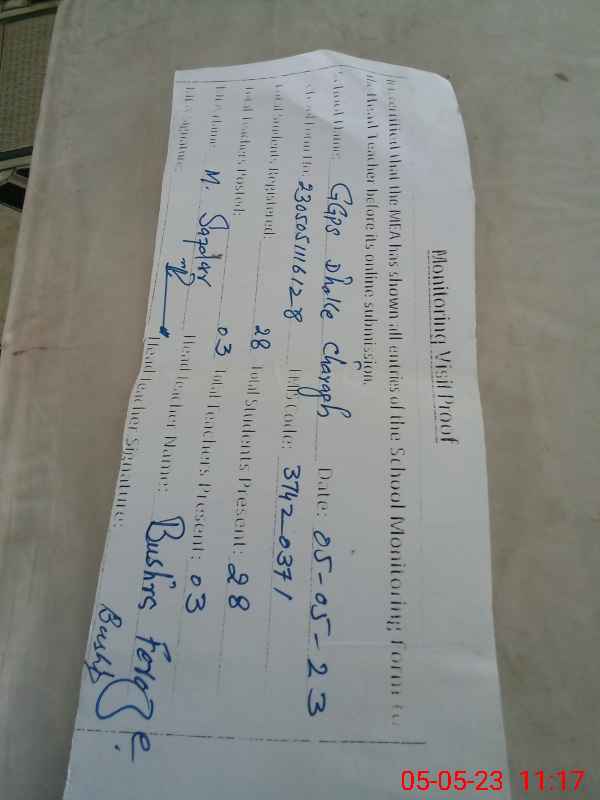 Monitoring Visit Proof
It is certified that the MEA has shown all entries of the School Monitoring Form to
the Head Teacher before its online submission.
School Name: GGPS Dhalle Charagh Date: 05-05-23
School Form No: 230505116128 EMIS Code: 37420371
Total Students Registered: 28 Total Students Present: 28
Total Teachers Posted: 03 Total Teachers Present: 03
MEA Name: M. Safdar Head Teacher Name: Bushra
MEA Signature: Head Teacher Signature: Bushra
05-05-23 11:17